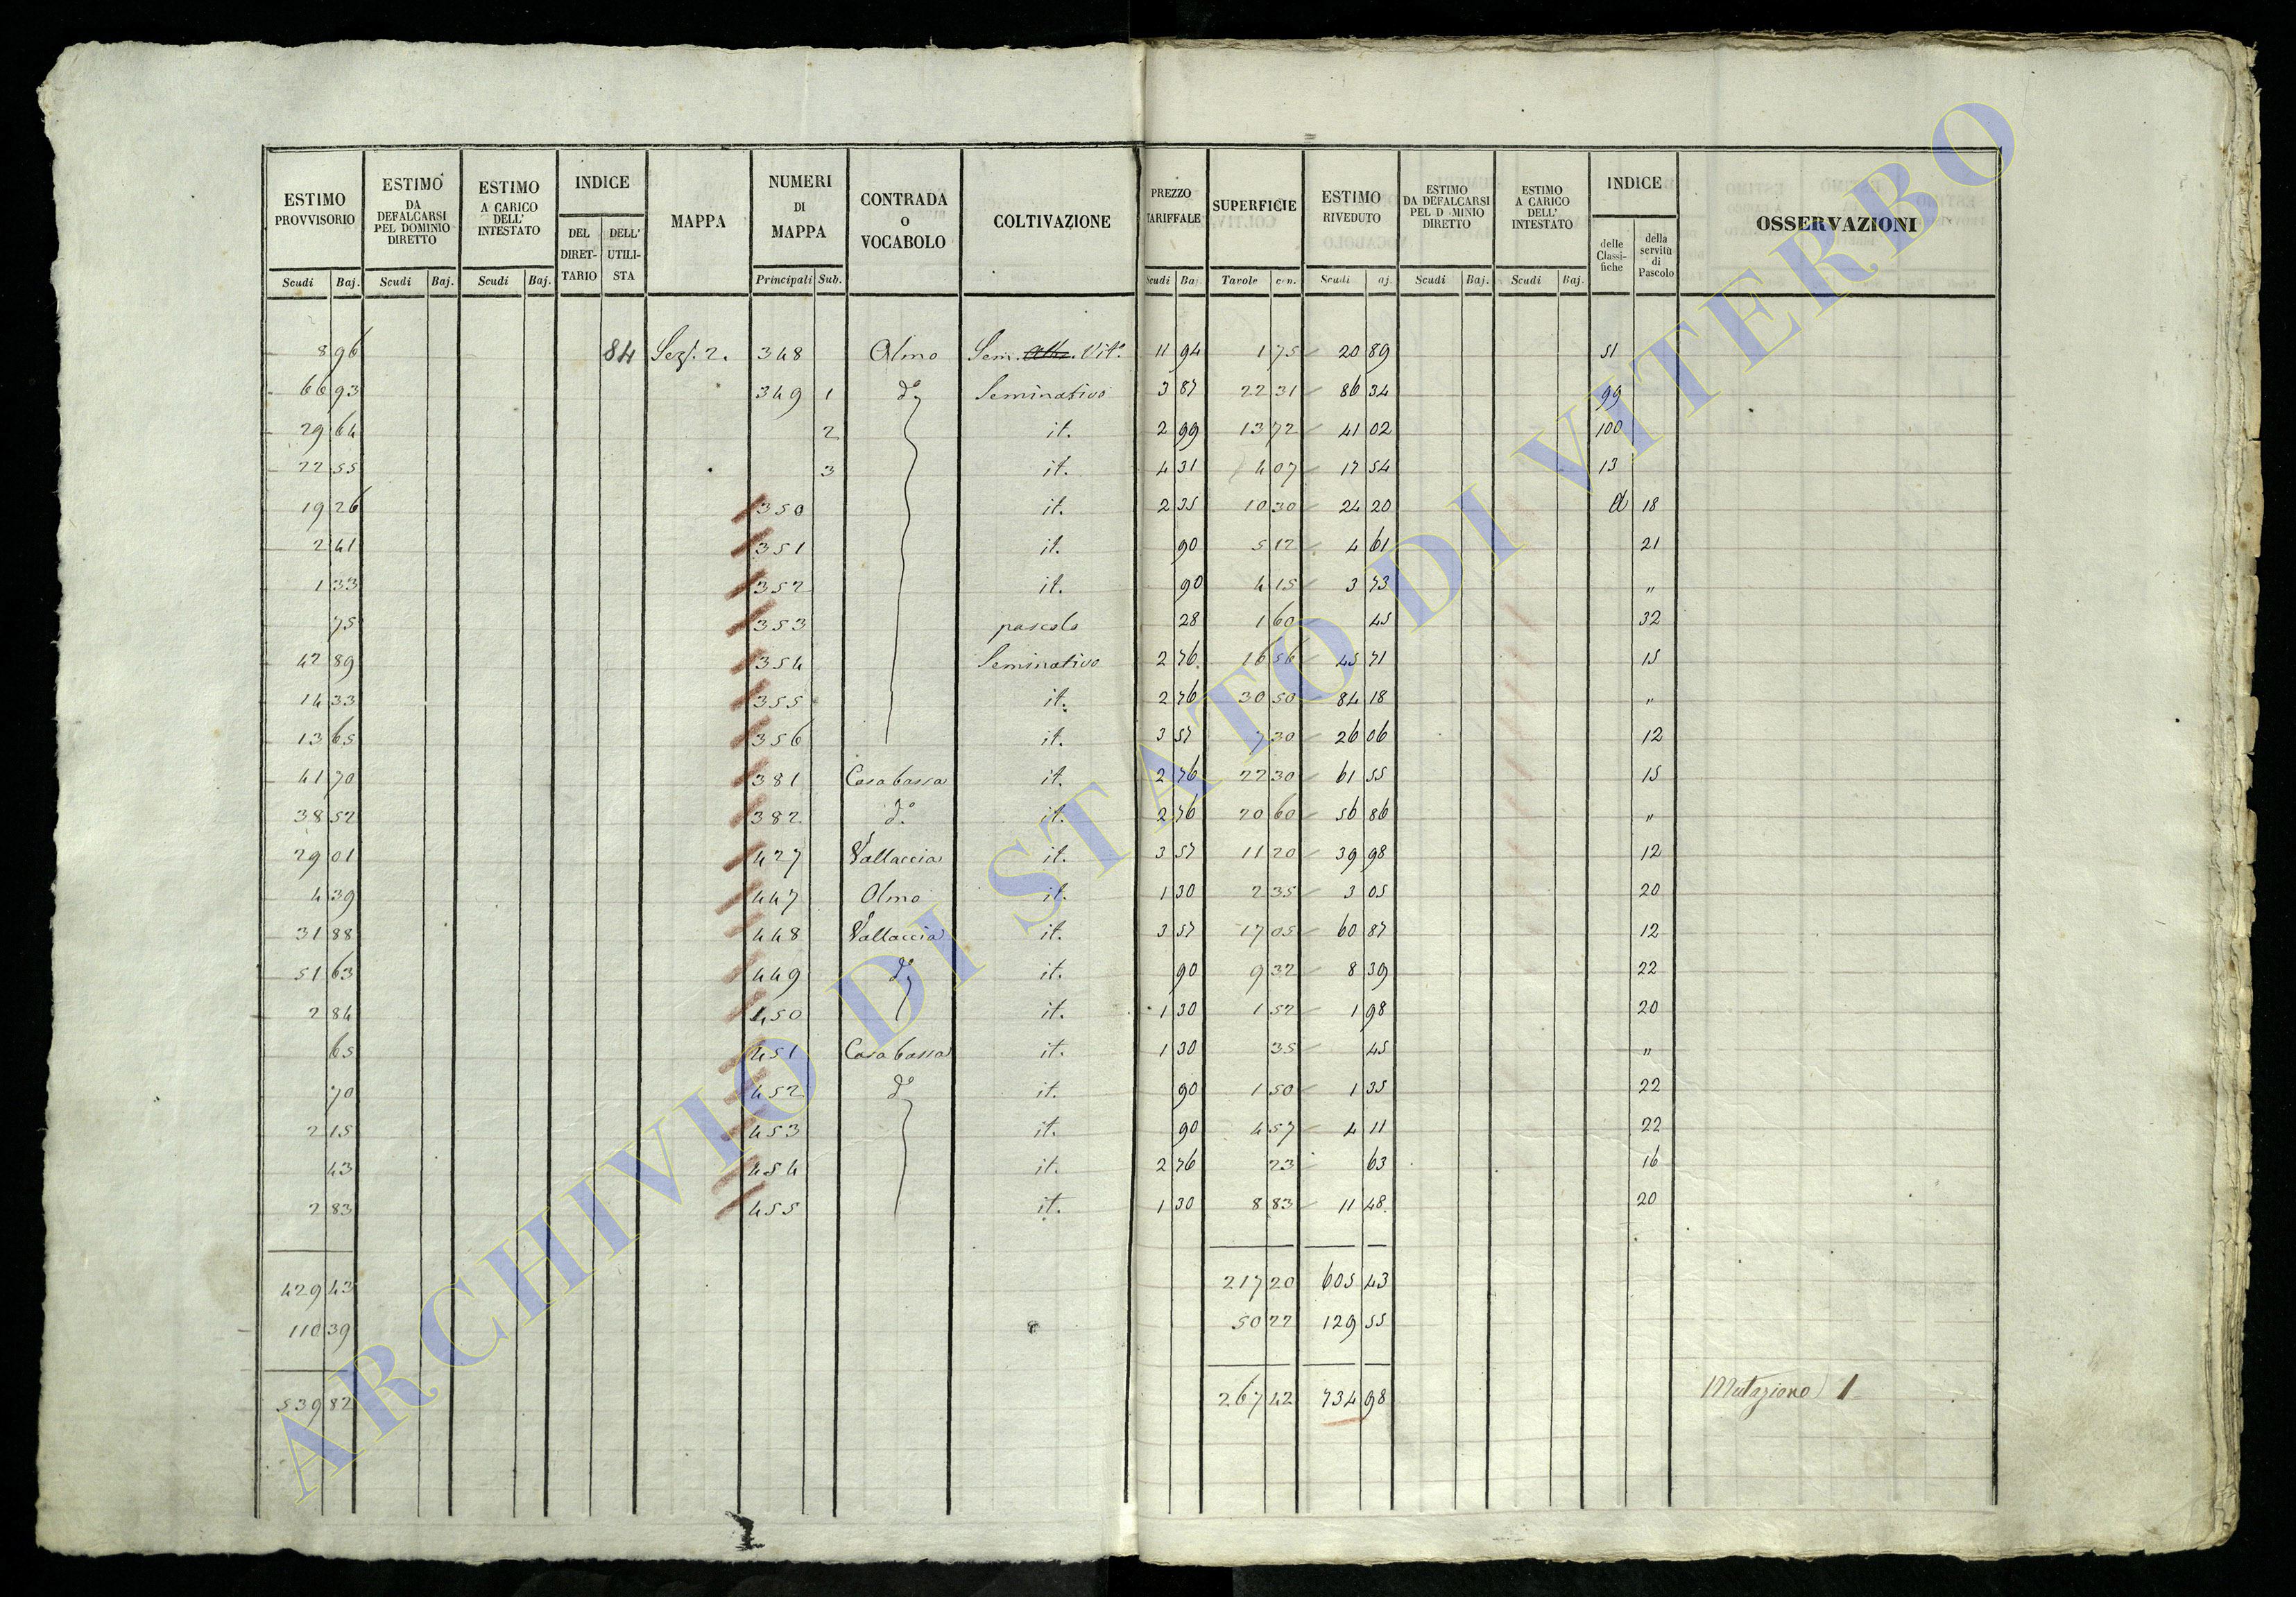 ESTIMO PROVVISORIO | ESTIMO DA DEFALCARSI PEL DOMINIO DIRETTO | ESTIMO A CARICO DELL' INTESTATO | INDICE | MAPPA | NUMERI DI MAPPA | CONTRADA O VOCABOLO | COLTIVAZIONE | PREZZO TARIFFALE | SUPERFICIE | ESTIMO RIVEDUTO | ESTIMO DA DEFALCARSI PEL D MINIO DIRETTO | ESTIMO A CARICO DELL' INTESTATO | INDICE | OSSERVAZIONI
DEL DIRETTARIO | DELL' UTILISTA | delle Classifiche | della servitù di Pascolo
Scudi Baj. | Scudi Baj. | Scudi Baj. | Principali Sub. | Scudi Ba. | Tavole cen. | Scudi aj. | Scudi Baj. | Scudi Baj.
8 96 84 Sez. 2. 348 Olmo Sem. Vit.º 11 94 1 75 20 89 51
66 93 349 1 dº Seminativo 3 87 22 31 86 34 99
29 64 2 it. 2 99 13 72 41 02 100
22 55 3 it. 4 31 4 07 17 54 13
19 26 350 it. 2 35 10 30 24 20 d 18
2 41 351 it. 90 5 12 4 61 21
1 33 352 it. 90 4 15 3 73 "
75 353 pascolo 28 1 60 45 32
42 89 354 Seminativo 2 76 16 56 45 71 15
14 33 355 it. 2 76 30 50 84 18 "
13 65 356 it. 3 57 7 30 26 06 12
41 70 381 Casabassa it. 2 76 22 30 61 55 15
38 52 382 dº it. 2 76 20 60 56 86 "
29 01 427 Vallaccia it. 3 57 11 20 39 98 12
4 39 447 Olmo it. 1 30 2 35 3 05 20
31 88 448 Vallaccia it. 3 57 17 05 60 87 12
51 63 449 dº it. 90 9 32 8 39 22
2 84 450 it. 1 30 1 52 1 98 20
65 451 Casabassa it. 1 30 35 45 "
70 452 dº it. 90 1 50 1 35 22
2 15 453 it. 90 4 57 4 11 22
43 454 it. 2 76 23 63 16
2 83 455 it. 1 30 8 83 11 48 20
429 43 217 20 605 43
110 39 50 22 129 55
539 82 267 42 734 98 Mutazione 1
ARCHIVIO DI STATO DI VITERBO